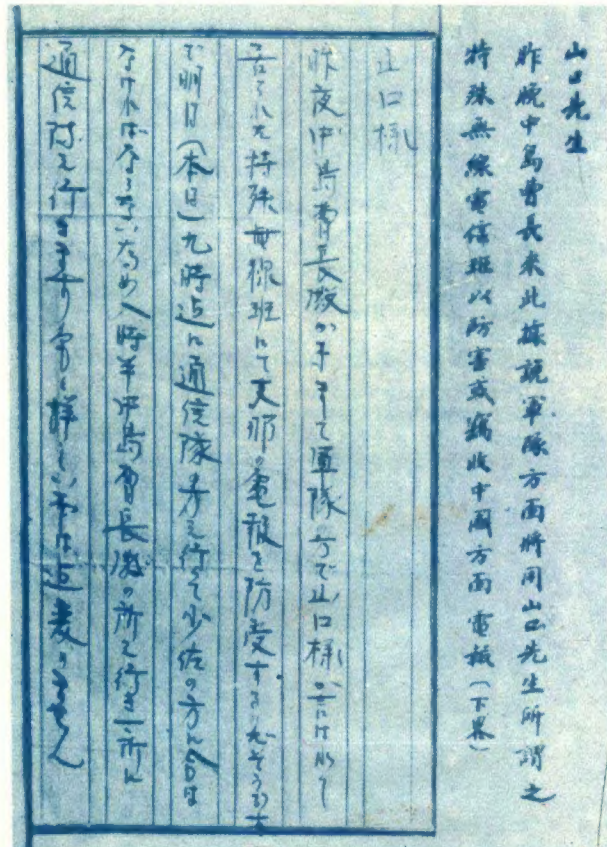 山口先生
昨晩中島曹長来此據説軍隊方面将用山口先生所謂之
特殊無線電信班以防害或竊收中國方面電報（下畧）
山口様
昨夜中島曹長殿が きまして軍隊の方で山口様の
言はれた特殊無線班にて支那の電報を防受する
で明日（本日）九時迄に通信隊の方え行って少佐の方に合は
なければならないため八時半中島曹長殿の所え行き一所に
通信隊え行きます 詳しい事は